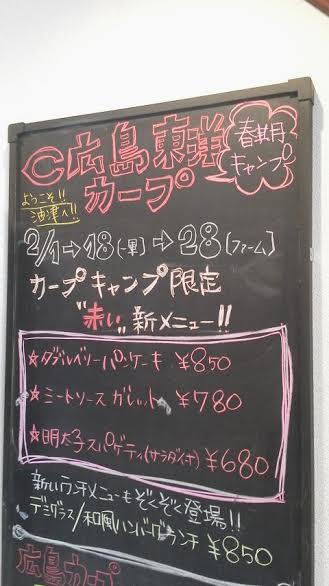 C広島東洋
カープ
春期
キャンプ
ようこそ!!
油津へ!!
2/1⇒18[一軍]⇒28[ファーム]
カープキャンプ限定
"赤い"新メニュー!!
☆ダブルベリーパンケーキ ¥850
☆ミートソースガレット ¥780
☆明太子スパゲティ(サラダ付) ¥680
新しいランチメニューもぞくぞく登場!!
デミグラス/和風ハンバーグランチ ¥850
広島カープ